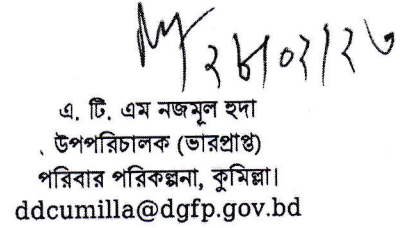 ২৮/০২/২৩
এ. টি. এম নজমূল হুদা
উপপরিচালক (ভারপ্রাপ্ত)
পরিবার পরিকল্পনা, কুমিল্লা।
ddcumilla@dgfp.gov.bd